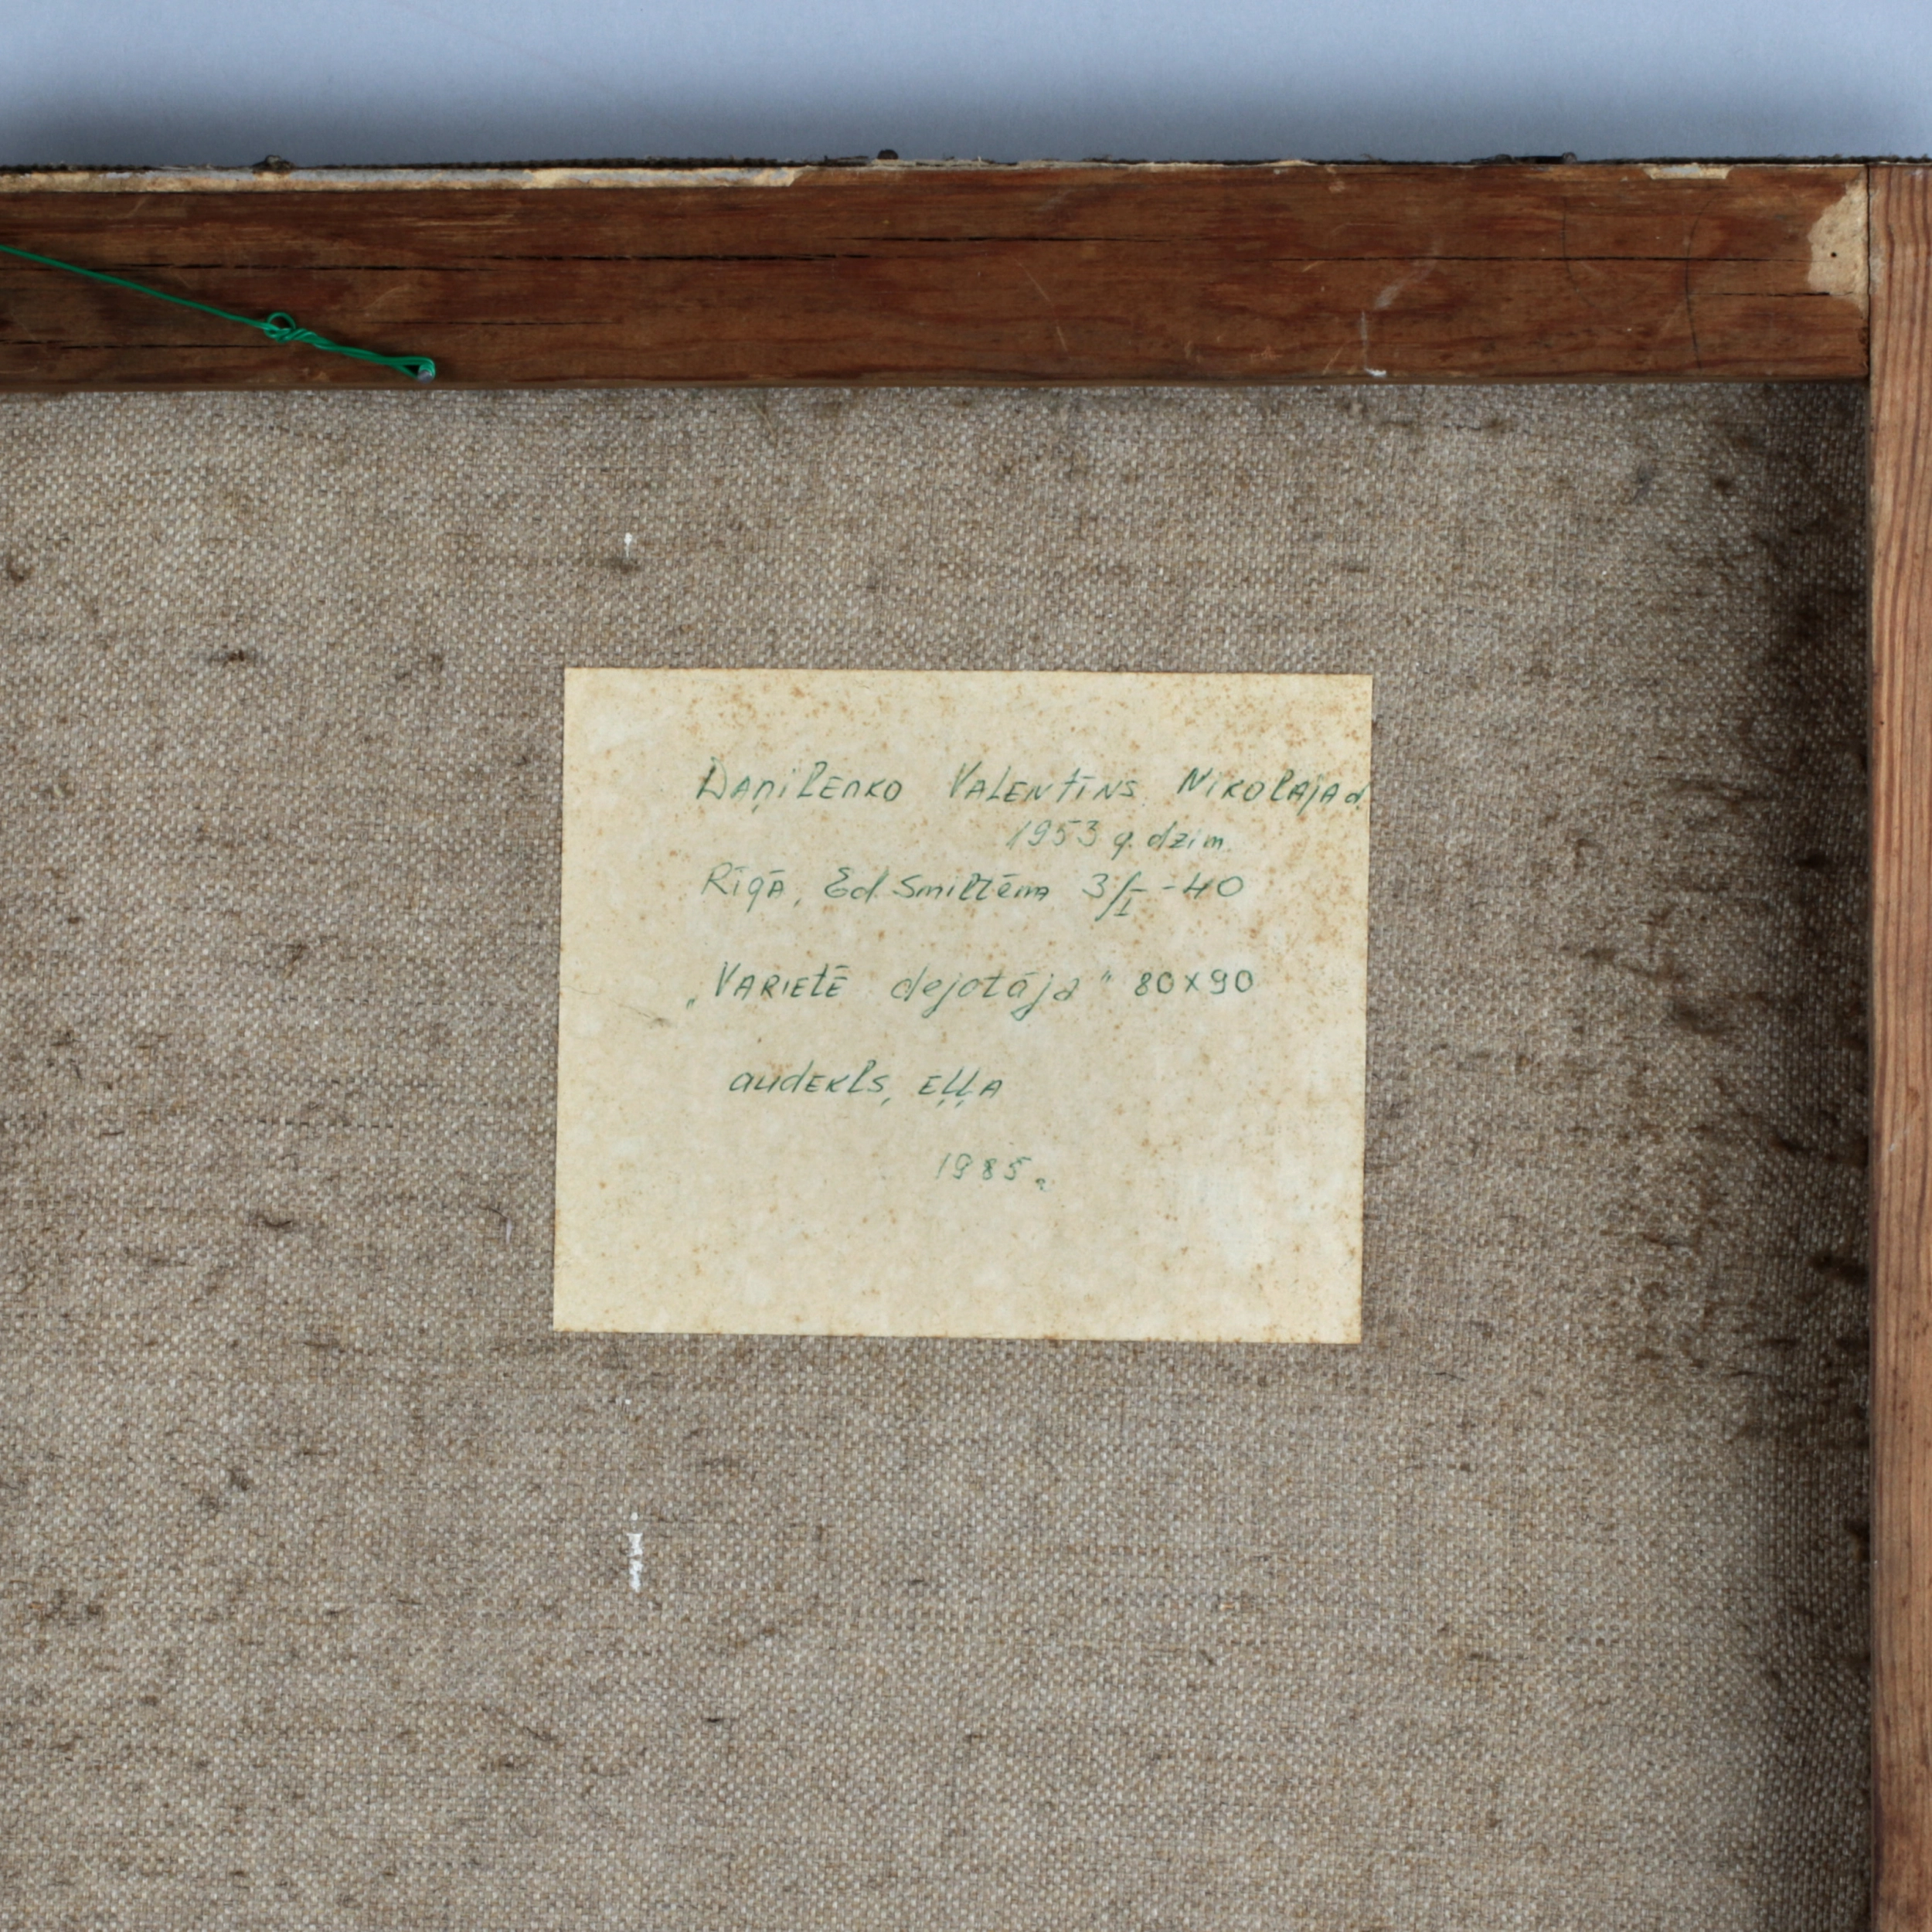 Daņilenko Valentīns Nikolaja d.
1953 g. dzim.
Rīgā, Ed. Smiltēņa 3/I - 40
„Varietē dejotāja" 80x90
audekls, eļļa
1985 g.